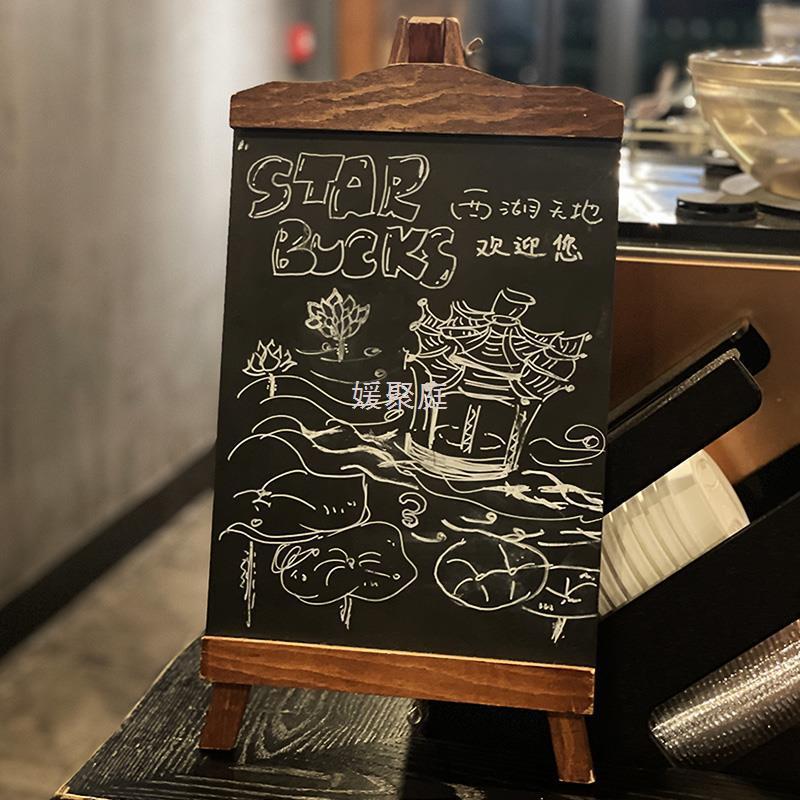 STAR
西湖天地
BUCKS
欢迎您
媛聚庭